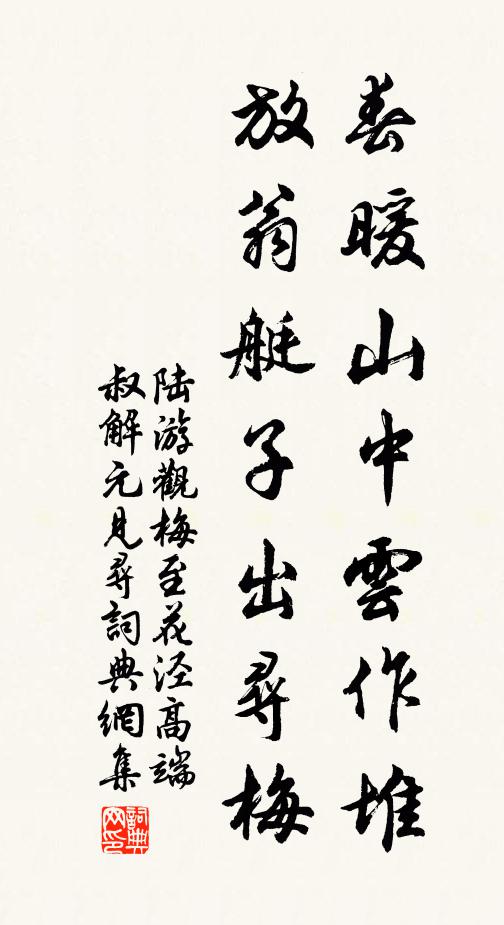 春暖山中雲作堆
放翁艇子出尋梅
陸游觀梅至花涇高端
叔解元見尋詞典網集
詞典網印